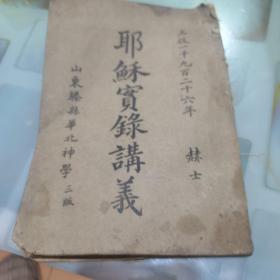 主後一千九百二十六年
赫士
耶穌實錄講義
山東滕縣華北神學三版